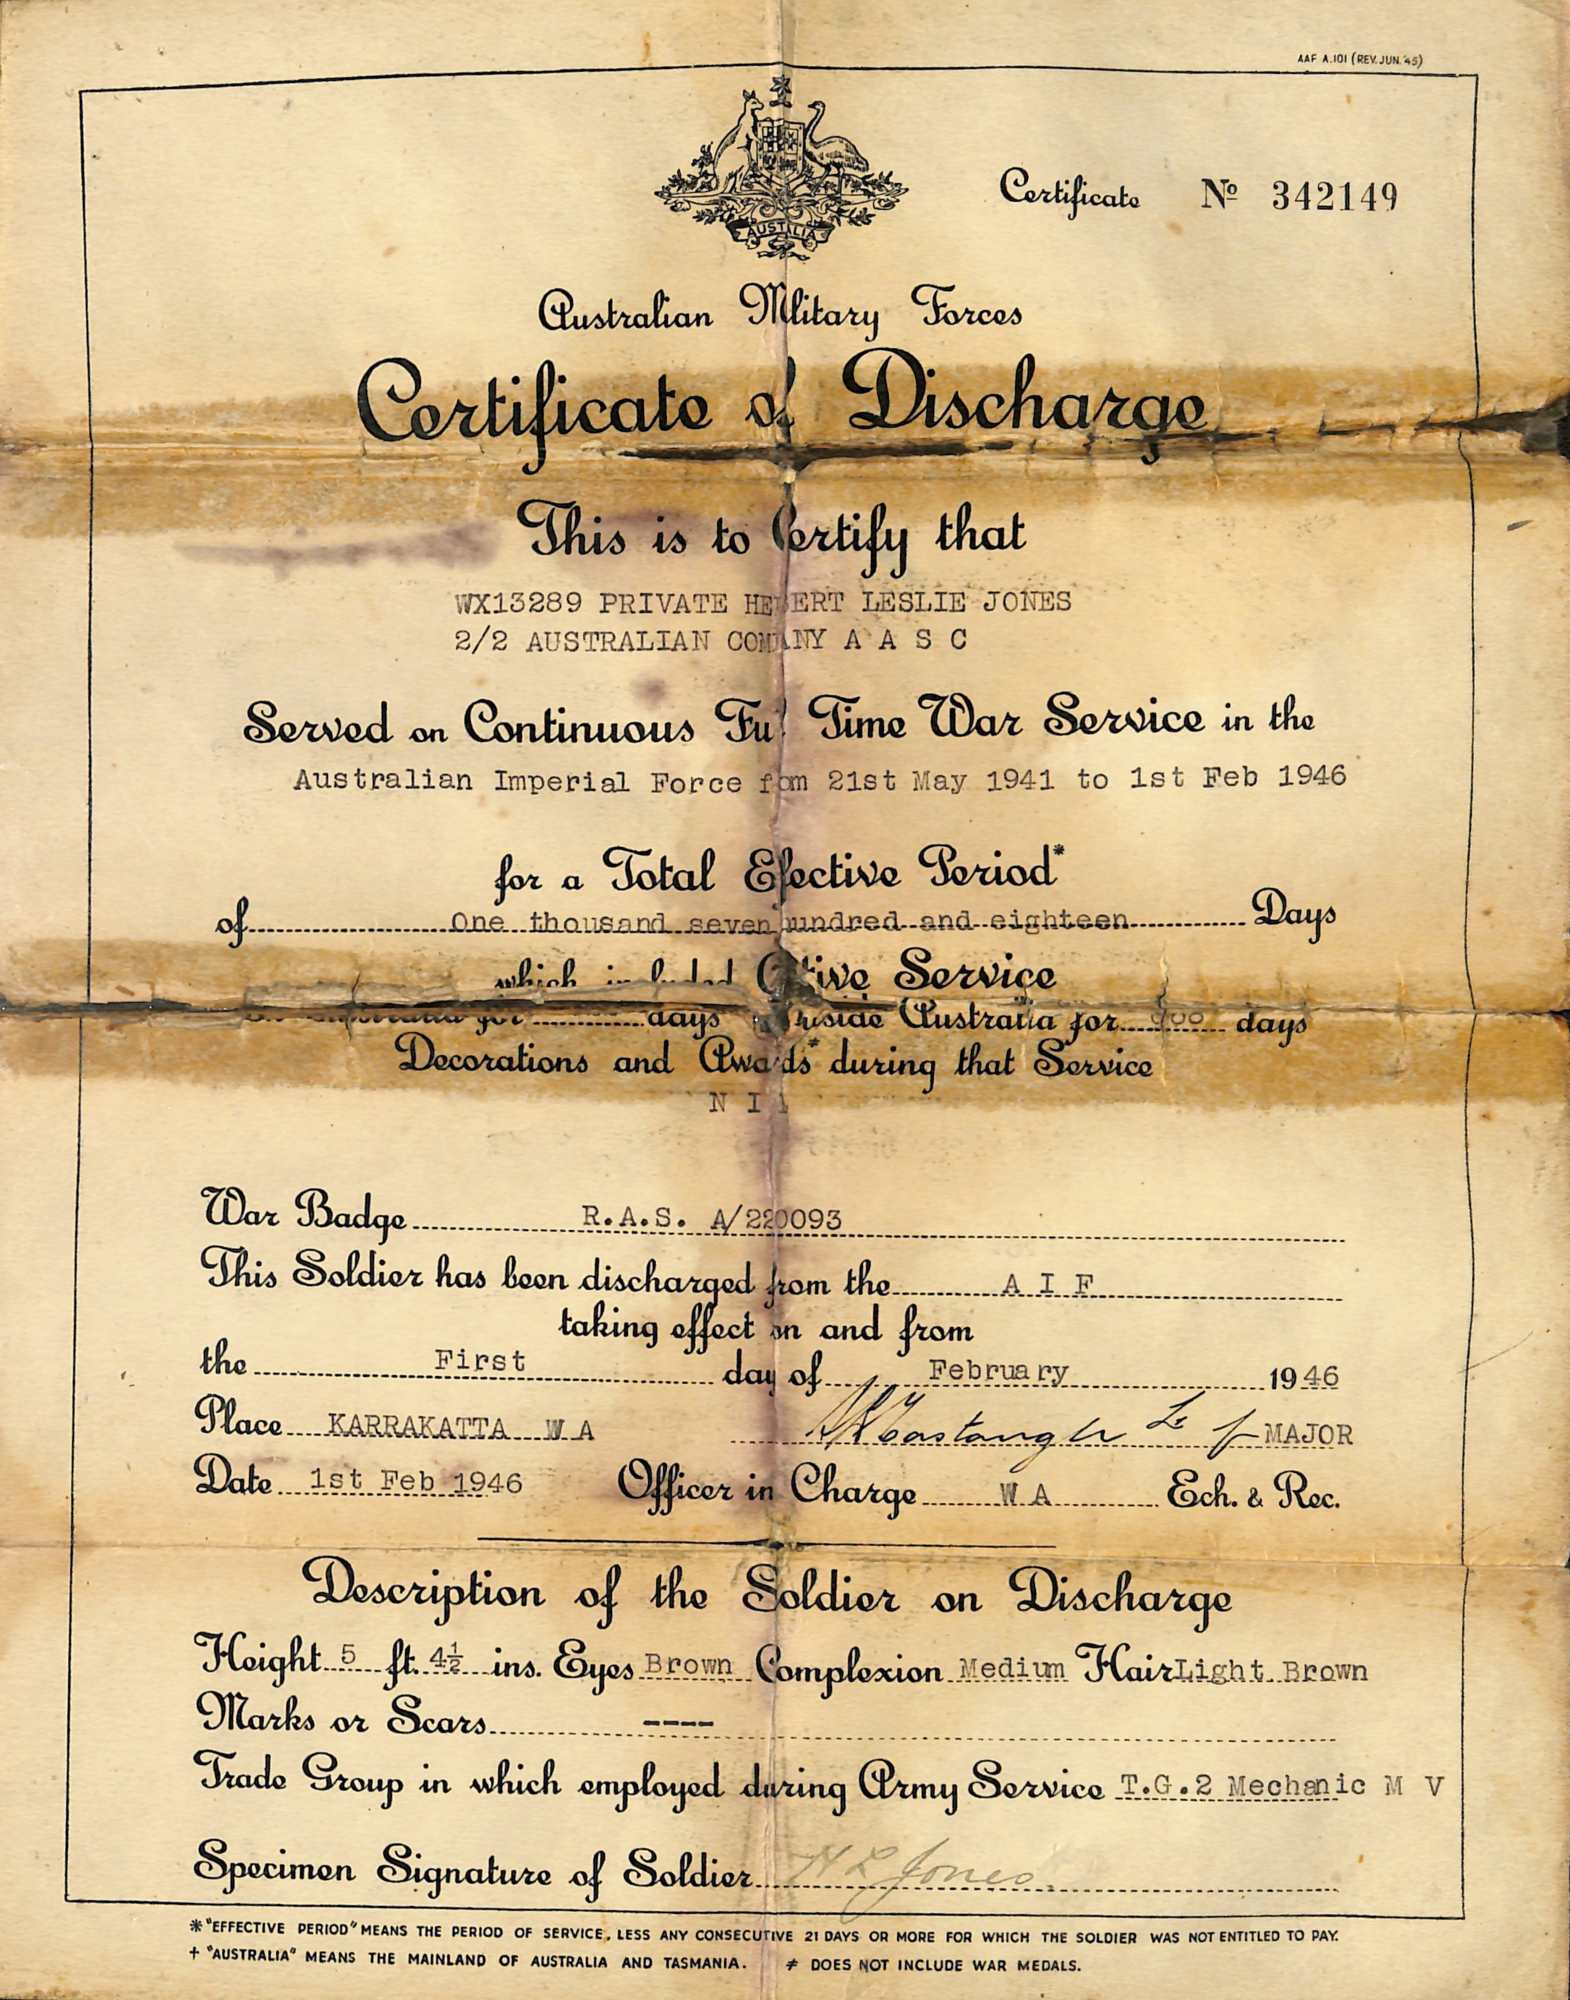 AAF A.101 (REV. JUN. '45)
AUSTRALIA
Certificate Nº 342149
Australian Military Forces
Certificate of Discharge
This is to Certify that
WX13289 PRIVATE HEBERT LESLIE JONES
2/2 AUSTRALIAN COMPANY A A S C
Served on Continuous Full Time War Service in the
Australian Imperial Force from 21st May 1941 to 1st Feb 1946
for a Total Effective Period*
of One thousand seven hundred and eighteen Days
which included Active Service
in Australia for days outside Australia for days
Decorations and Awards during that Service
N I L
War Badge R.A.S. A/220093
This Soldier has been discharged from the A I F
taking effect on and from
the First day of February 1946
Place KARRAKATTA W A MAJOR
Date 1st Feb 1946 Officer in Charge W A Ech. & Rec.
Description of the Soldier on Discharge
Height 5 ft. 4½ ins. Eyes Brown Complexion Medium Hair Light Brown
Marks or Scars ----
Trade Group in which employed during Army Service T.G.2 Mechanic M V
Specimen Signature of Soldier H L Jones
* "EFFECTIVE PERIOD" MEANS THE PERIOD OF SERVICE, LESS ANY CONSECUTIVE 21 DAYS OR MORE FOR WHICH THE SOLDIER WAS NOT ENTITLED TO PAY.
+ "AUSTRALIA" MEANS THE MAINLAND OF AUSTRALIA AND TASMANIA. ≠ DOES NOT INCLUDE WAR MEDALS.